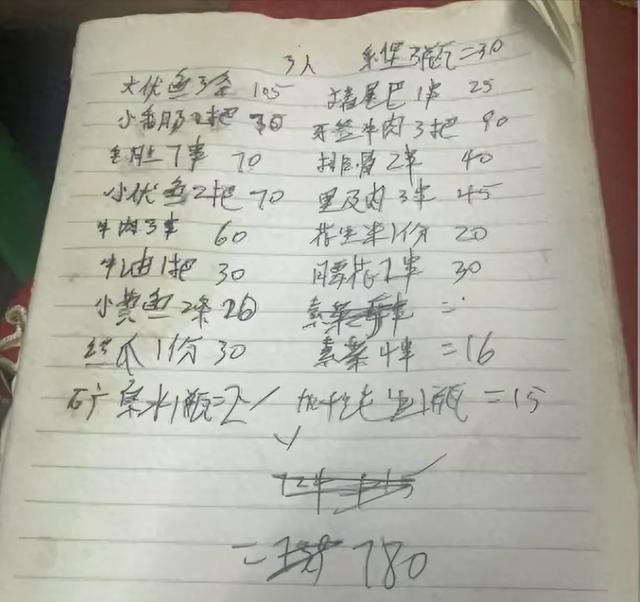 3人 3瓶=30
大伏鱼3条 105 猪尾巴1串 25
小香肠2把 30 牙签牛肉3把 90
毛肚7串 70 排骨2串 40
小伏鱼2把 70 里及肉3串 45
牛肉3串 60 花生米1份 20
牛油1把 30 腰花2串 30
小黄鱼2条 26 素菜 =
丝瓜1份 30 素菜4串 =16
矿泉水1瓶=2 1瓶=15
=780